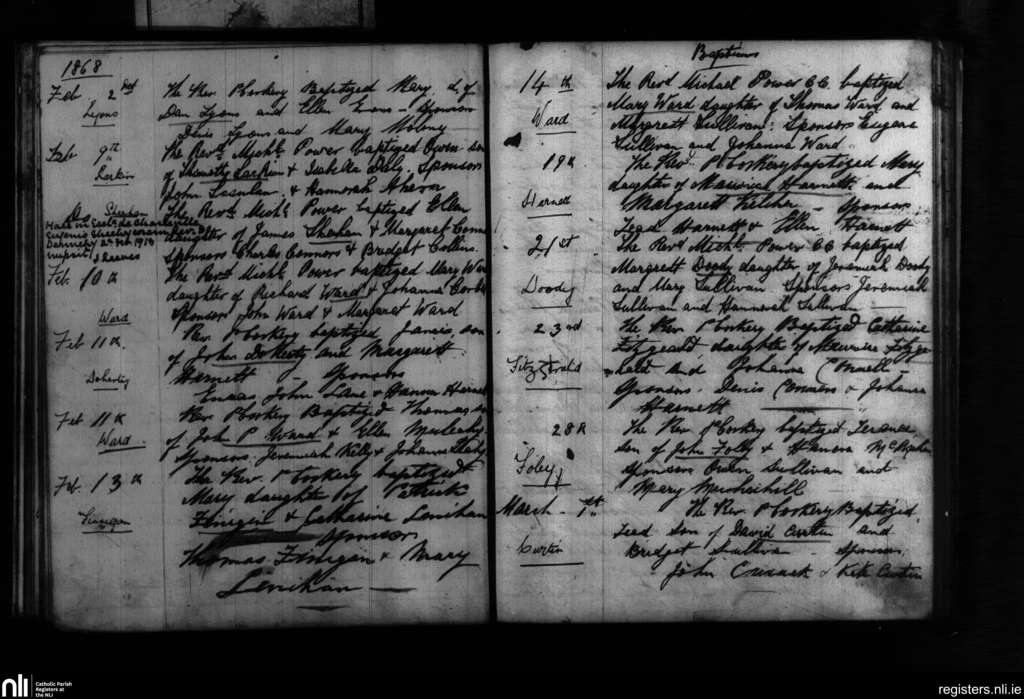 1868
Feb 2nd
Lyons
The Rev P Corkery Baptized Mary d. of
Dan Lyons and Ellen Enns - Sponsors
Denis Lyons and Mary
Feb 9th
Larkin
The Revd Michl Power baptized Owen son
of Timothy Larkin & Isabella Daly. Sponsors
John Scanlan & Hannorah Ahern
Do Sheehan
The Revd Michl Power baptized Ellen
daughter of James Sheehan & Margaret Connor
Sponsors Charles Connors & Bridget Collins.
2nd Feb 1918
J Reeves
Feb. 10th
Ward
The Revd Michl Power baptized Mary Ward
daughter of Richard Ward & Johanna
Sponsors John Ward & Margaret Ward
Feb 11th.
Doherty
Rev. P Corkery baptized James, son
of John doherty and Margarett
Sponsors
John Lane & Hanora
Feb 11th
Ward
Rev. P Corkery Baptized Thomas, son
of John P Ward & Ellen
Sponsors Jeremiah Kelly & Johanna
Feb. 13th
Finegan
The Rev. P Corkery baptized
Mary daughter of Patrick
Finegin & Catharine Lenihan
Sponsors
Thomas Finegan & Mary
Lenihan
Baptisms
14th
Ward
The Revd Michael Power CC. baptized
Mary Ward daughter of Thomas Ward and
Margrett Sullivan: Sponsors Eugene
Sullivan and Johanna Ward.
19th
Harnett
The Revd. P Corkery baptized Mary
daughter of Maurice Harnett and
Margaret Kelcher - Sponsors
Harnett & Ellen Harnett
21st
Doody
The Revd Michl Power CC baptized
Margrett Doody daughter of Jeremiah Doody
and Mary Sullivan Sponsors Jeremiah
Sullivan and Hannorah Sullivan
23rd
Fitzgerald
The Rev. P Corkery Baptized Catharine
Fitzgerald, daughter of Maurice Fitzge
rald and Johanna Connell -
Sponsors. Denis Connors & Johanna
Harnett
28th
Foley
The Rev. P Corkery baptized Terance
son of John Folby & Hanora
Sponsors Owen Sullivan and
Mary
March - 1st
Curtin
The Rev. P Corkery Baptized
son of David Curtin and
Bridget Sullivan - Sponsors.
John Cussack & Kate Curtin
nli
Catholic Parish
Registers at
the NLI
registers.nli.ie